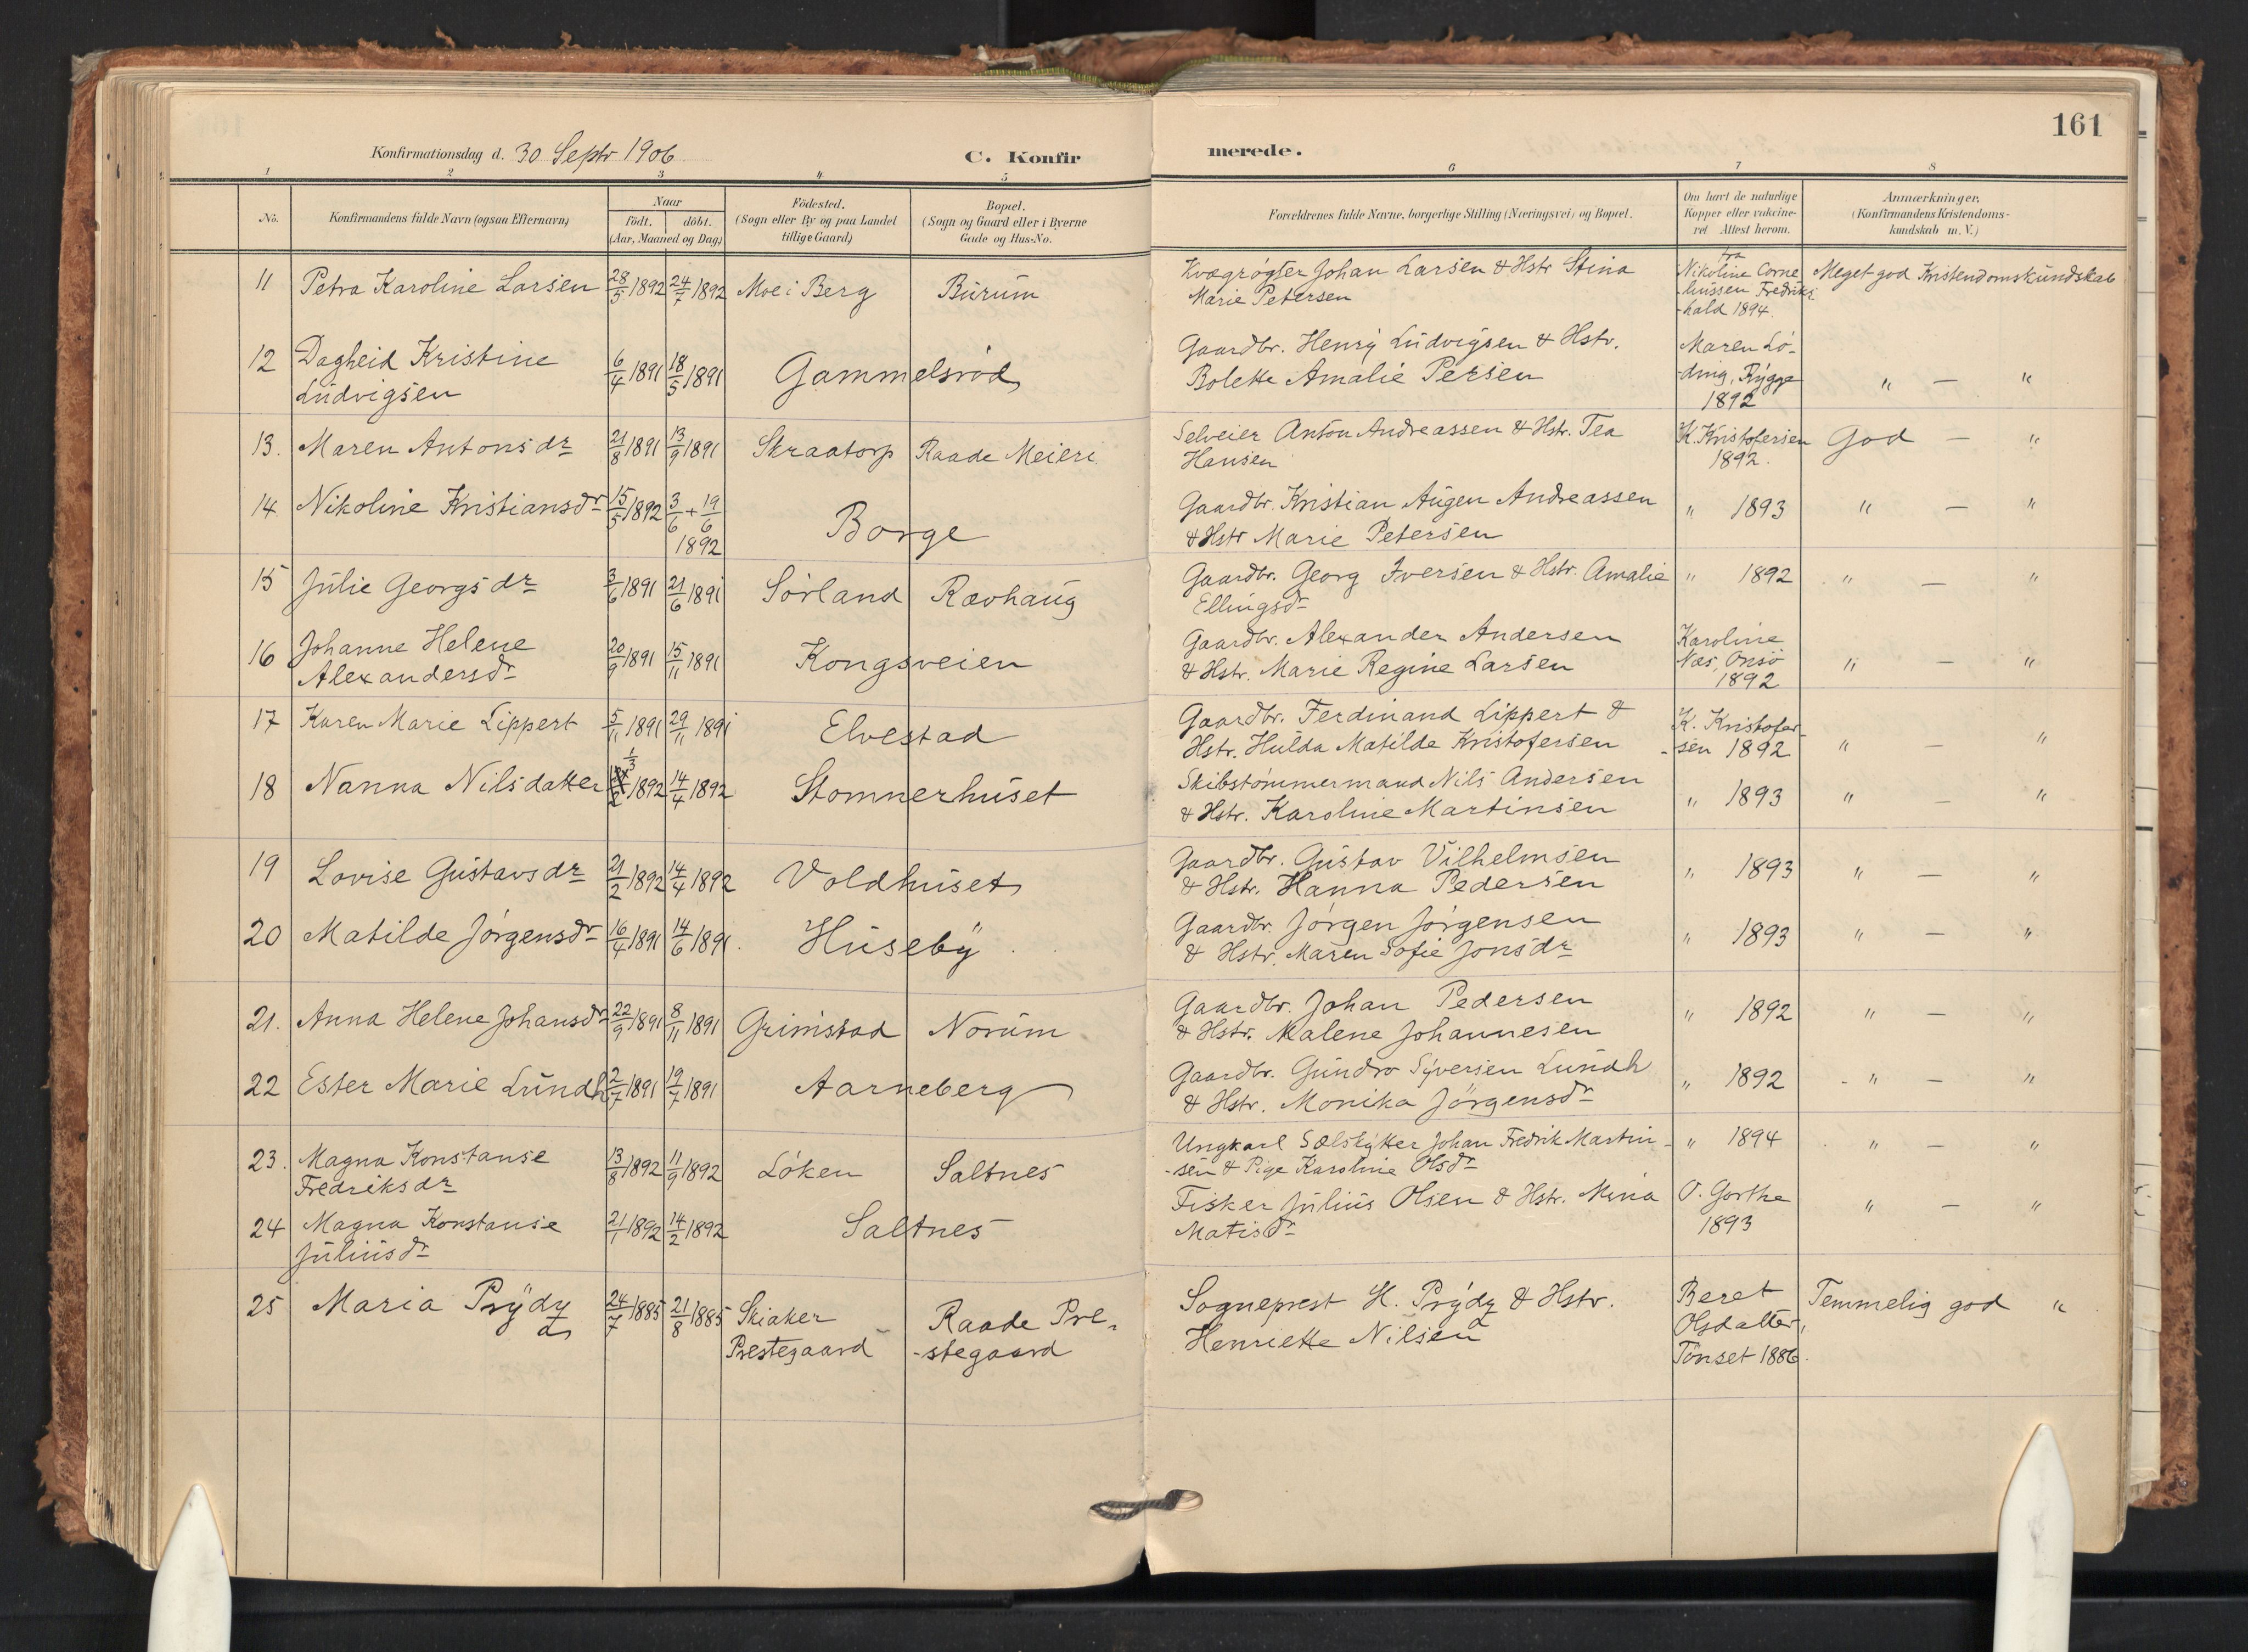 161
Konfirmationsdag d. 30 Septr 1906 C. Konfirmerede.
1 2 3 4 5 6 7 8
No. Konfirmandens fulde Navn (ogsaa Efternavn) Naar født. døbt. (Aar, Maaned og Dag) Fødested. (Sogn eller By og paa Landet tillige Gaard) Bopæl. (Sogn og Gaard eller i Byerne Gade og Hus-No. Forældrenes fulde Navne, borgerlige Stilling (Næringsvei) og Bopæl. Om havt de naturlige Kopper eller vakcineret Attest herom. Anmærkninger. (Konfirmandens Kristendomskundskab m. V.)
11 Petra Karoline Larsen 28/5 1892 24/7 1892 Moe i Berg Burum Kvægrøgter Johan Larsen & Hstr Stina
Marie Petersen
fra Nikoline Corne
-liussen Fredriks-
-hald 1894.
Meget god Kristendomskundskab
12 Dagheid Kristine
Ludvigsen
6/4 1891 18/5 1891 Gammelsrød Gaardbr. Henry Ludvigsen & Hstr.
Bolette Amalie Persen
Maren Lö-
-ding, Rygge
1892
" — "
13. Maren Antonsdr 21/8 1891 13/9 1891 Skraatorp Raade Meieri Selveier Anton Andreassen & Hstr. Tea
Hansen
K. Kristofersen
1892.
God — "
14 Nikoline Kristiansdr 15/5 1892 3/6 + 19/6
1892
Borge Gaardbr. Kristian Augen Andreassen
& Hstr Marie Petersen
" 1893 " — "
15 Julie Georgsdr 3/6 1891 21/6 1891 Sörland Ravhaug Gaardbr. Georg Iversen & Hstr. Amalie
Ellingsdr
" 1892 " — "
16 Johanne Helene
Alexandersdr
20/9 1891 15/11 1891 Kongsveien Gaardbr. Alexander Andersen
& Hstr. Marie Regine Larsen
Karoline
Næs, Onsö
1892
" — "
17 Karen Marie Lippert 5/11 1891 29/11 1891 Elvestad Gaardbr. Ferdinand Lippert &
Hstr. Hulda Matilde Kristofersen
K. Kristofer-
-sen 1892
" — "
18 Nanna Nilsdatter 1/3 1892 14/4 1892 Stomnerhuset Skibstømmermand Nils Andersen
& Hstr. Karoline Martinsen
" 1893 " — "
19 Lovise Gustavsdr 21/2 1892 14/4 1892 Voldhuset Gaardbr. Gustav Vilhelmsen
& Hstr. Hanna Pedersen
" 1893 " — "
20 Matilde Jörgensdr 16/4 1891 14/6 1891. Huseby Gaardbr. Jörgen Jörgensen
& Hstr. Maren Sofie Jonsdr
" 1893 " — "
21. Anna Helene Johansdr 22/9 1891 8/11 1891 Grimstad Norum Gaardbr. Johan Pedersen
& Hstr. Malene Johannesen
" 1892 " — "
22 Ester Marie Lundh 2/7 1891 19/7 1891 Aarneberg Gaardbr. Gundro Syversen Lundh
& Hstr. Monika Jörgensdr
" 1892 " — "
23. Magna Konstanse
Fredriksdr
13/8 1892 11/9 1892 Löken Saltnes Ungkarl Sælskytter Johan Fredrik Martin-
-sen & Pige Karoline Olsdr
" 1894 " — "
24 Magna Konstanse
Juliusdr
21/1 1892 14/2 1892 Saltnes Fisker Julius Olsen & Hstr. Mina
Matisdr
O. Garthe
1893
" — "
25 Maria Prydz 24/7 1885 21/8 1885 Skiaker
Prestegaard
Raade Pre-
-stegaard
Sogneprest H. Prydz & Hstr.
Henriette Nilsen
Beret
Olsdatter,
Tönset 1886.
Temmelig god "